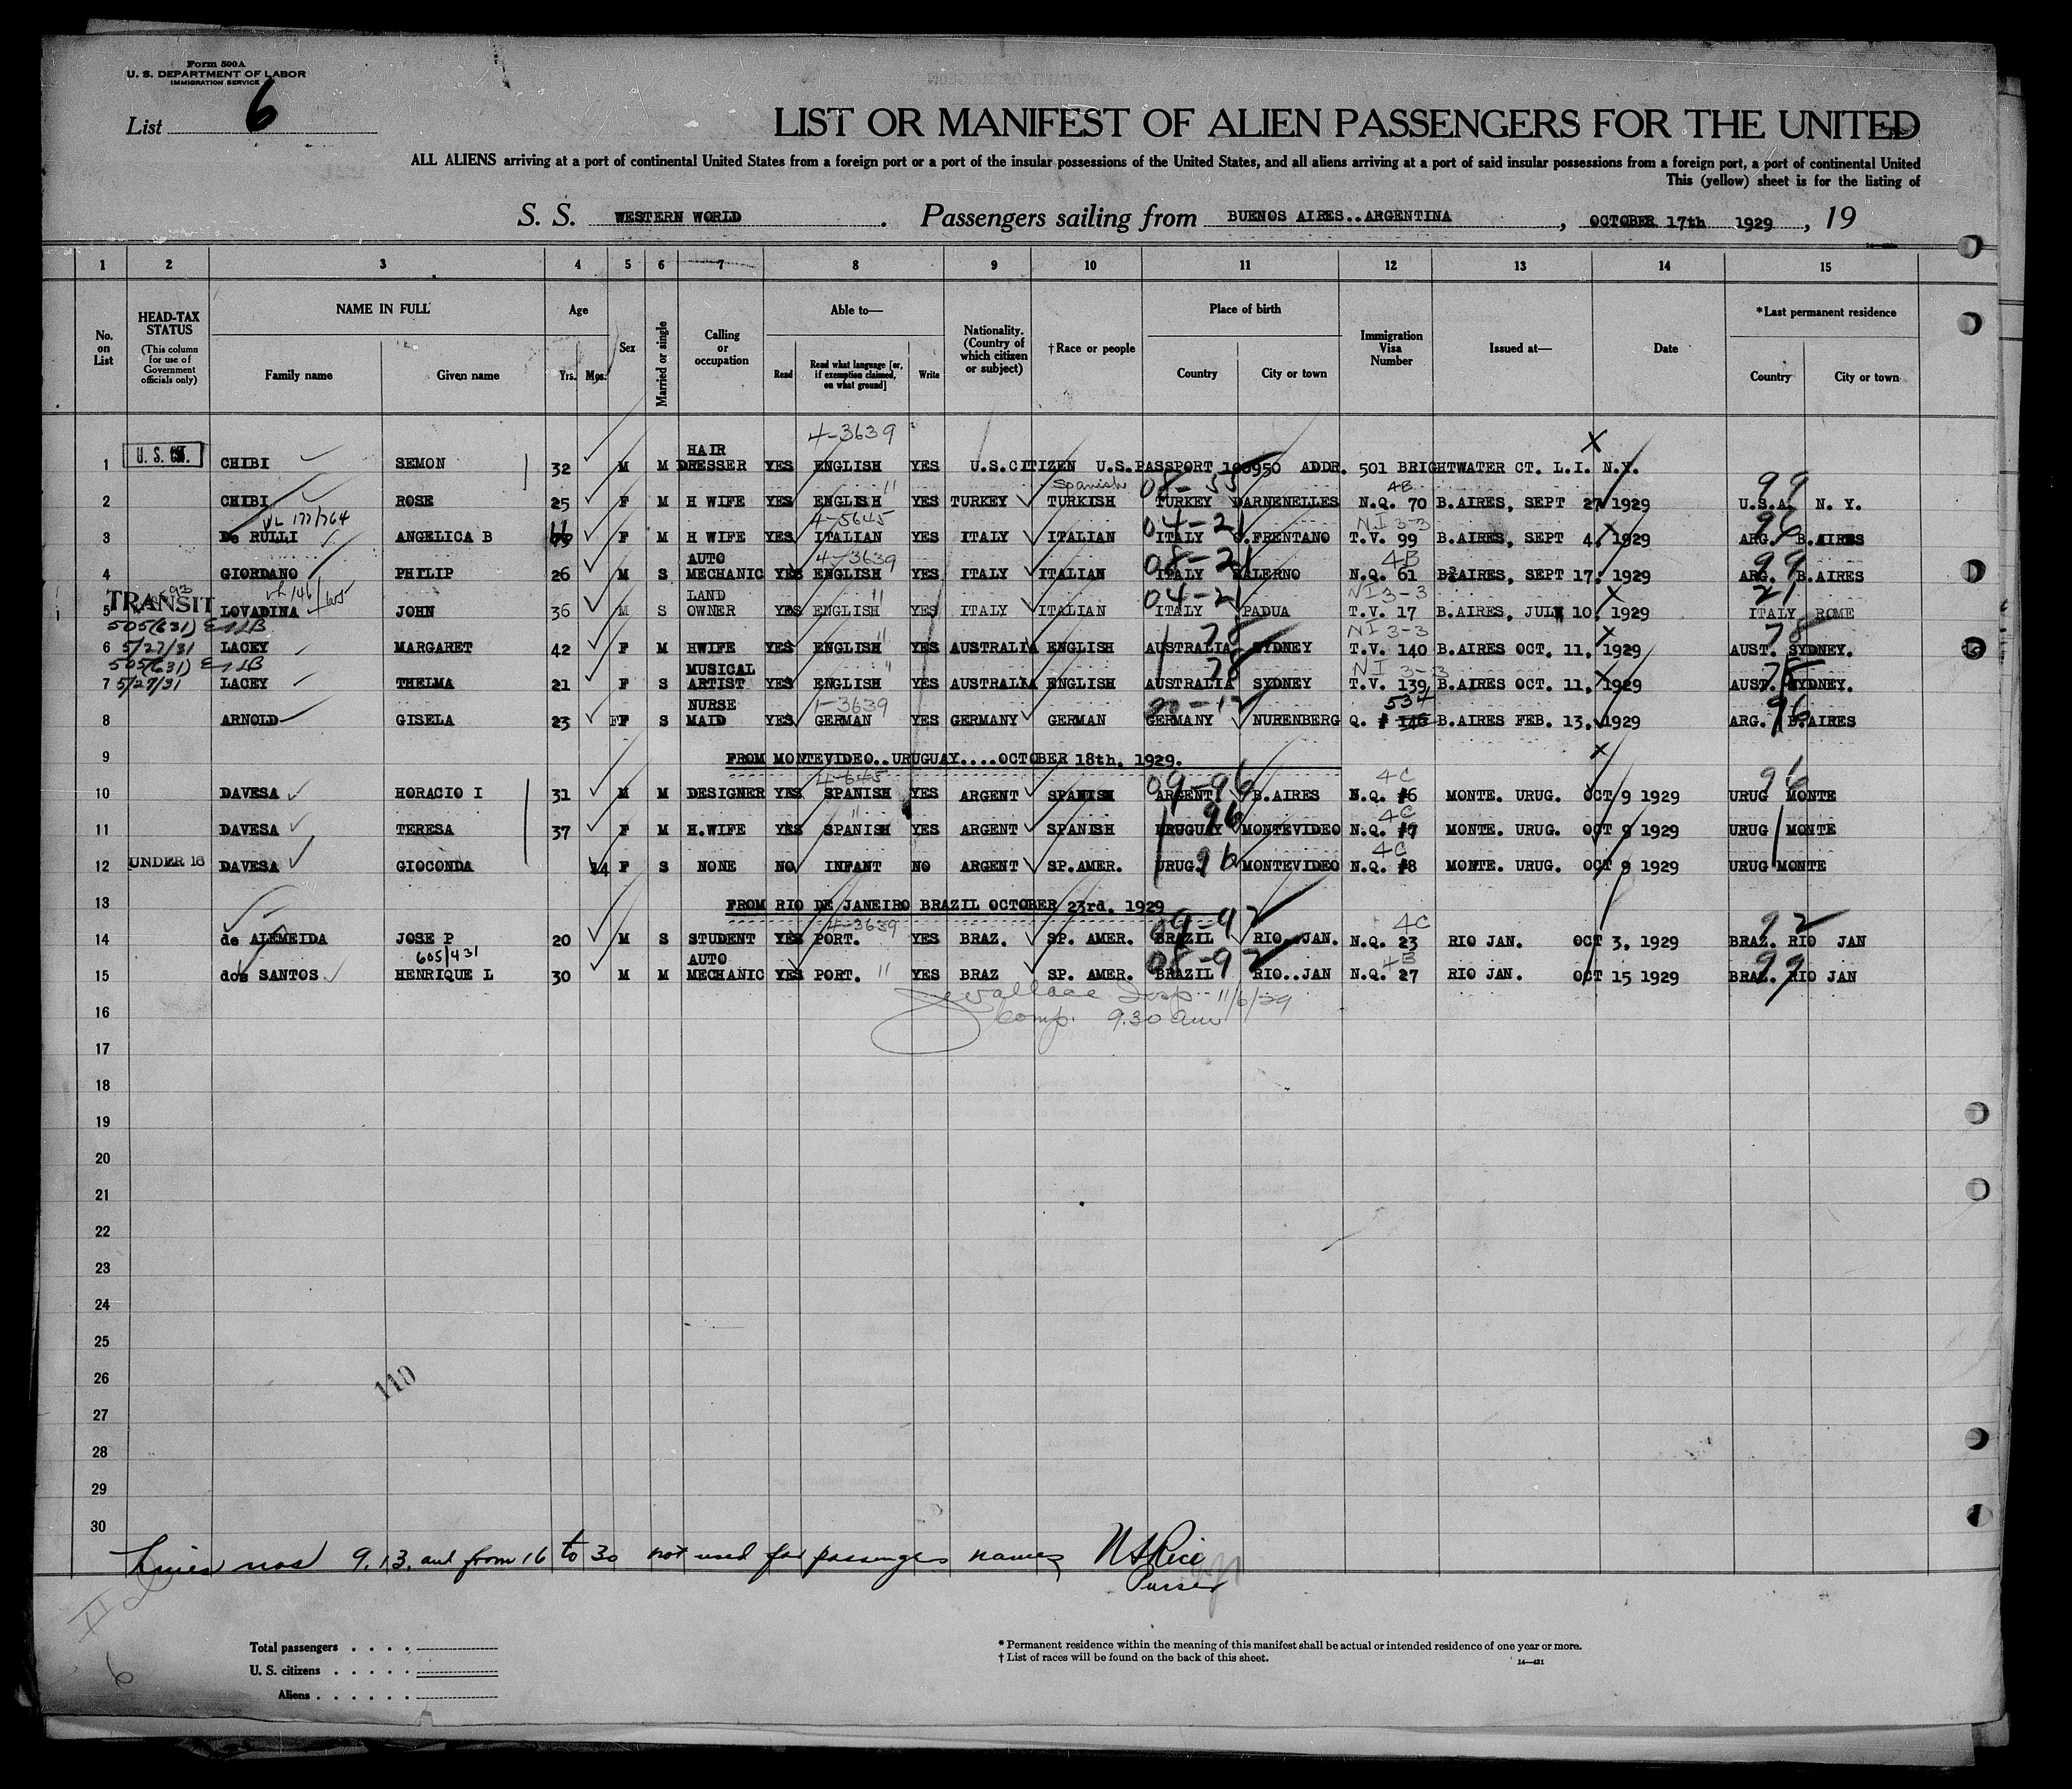 Form 500A
U. S. DEPARTMENT OF LABOR
IMMIGRATION SERVICE
List 6
LIST OR MANIFEST OF ALIEN PASSENGERS FOR THE UNITED
ALL ALIENS arriving at a port of continental United States from a foreign port or a port of the insular possessions of the United States, and all aliens arriving at a port of said insular possessions from a foreign port, a port of continental United
This (yellow) sheet is for the listing of
S. S. WESTERN WORLD . Passengers sailing from BUENOS AIRES..ARGENTINA , OCTOBER 17th 1929 , 19
1 2 3 4 5 6 7 8 9 10 11 12 13 14 15
No. on List
HEAD-TAX STATUS
(This column for use of Government officials only)
NAME IN FULL
Family name Given name
Age
Yrs. Mos.
Sex
Married or single
Calling or occupation
Able to—
Read Read what language [or, if exemption claimed, on what ground] Write
Nationality. (Country of which citizen or subject)
†Race or people
Place of birth
Country City or town
Immigration Visa Number
Issued at—
Date
*Last permanent residence
Country City or town
4-3639
1 U. S. CIT. CHIBI SEMON 32 M M HAIR DRESSER YES ENGLISH YES U.S.CITIZEN U.S.PASSPORT ADDR. 501 BRIGHTWATER CT. L.I. N.Y.
Spanish 4B 99
2 CHIBI ROSE 25 F M H WIFE YES ENGLISH " YES TURKEY TURKISH TURKEY DARNENELLES N.Q. 70 B.AIRES, SEPT 27 1929 U.S.A. N. Y.
4-5645 04-21 NI 3-3 96
3 De RULLI ANGELICA B F M H WIFE YES ITALIAN YES ITALY ITALIAN ITALY FRENTANO T.V. 99 B.AIRES, SEPT 4, 1929 ARG. B.AIRES
4-3639 08-21 4B 99
4 GIORDANO PHILIP 26 M S AUTO MECHANIC YES ENGLISH YES ITALY ITALIAN ITALY SALERNO N.Q. 61 B.AIRES, SEPT 17, 1929 ARG. B.AIRES
TRANSIT 04-21 NI 3-3 21
5 LOVADINA JOHN 36 M S LAND OWNER YES ENGLISH " YES ITALY ITALIAN ITALY PADUA T.V. 17 B.AIRES, JULY 10, 1929 ITALY ROME
505(631) 78 NI 3-3 78
6 5/27/31 LACEY MARGARET 42 F M HWIFE YES ENGLISH " YES AUSTRALIA ENGLISH AUSTRALIA SYDNEY T.V. 140 B.AIRES OCT. 11, 1929 AUST. SYDNEY.
505(631) 78 NI 3-3 78
7 5/27/31 LACEY THELMA 21 F S MUSICAL ARTIST YES ENGLISH " YES AUSTRALIA ENGLISH AUSTRALIA SYDNEY T.V. 139 B.AIRES OCT. 11, 1929 AUST. SYDNEY.
1-3639 534 96
8 ARNOLD GISELA 23 F S NURSE MAID YES GERMAN YES GERMANY GERMAN GERMANY NURENBERG Q. # 146 B.AIRES FEB. 13, 1929 ARG. B.AIRES
9 FROM MONTEVIDEO..URUGUAY....OCTOBER 18th, 1929.
09-96 4C 96
10 DAVESA HORACIO I 31 M M DESIGNER YES SPANISH YES ARGENT SPANISH ARGENT B.AIRES N.Q. #6 MONTE. URUG. OCT 9 1929 URUG MONTE
96 4C
11 DAVESA TERESA 37 F M H.WIFE YES SPANISH " YES ARGENT SPANISH URUGUAY MONTEVIDEO N.Q. #7 MONTE. URUG. OCT 9 1929 URUG MONTE
96 4C
12 UNDER 16 DAVESA GIOCONDA 14 F S NONE NO INFANT NO ARGENT SP.AMER. URUG. MONTEVIDEO N.Q. #8 MONTE. URUG. OCT 9 1929 URUG MONTE
13 FROM RIO DE JANEIRO BRAZIL OCTOBER 23rd. 1929
4-3639 09-92 4C 92
14 de ALEMEIDA JOSE P 20 M S STUDENT YES PORT. YES BRAZ. SP. AMER. BRAZIL RIO..JAN. N.Q. 23 RIO JAN. OCT 3, 1929 BRAZ. RIO JAN
605/431 08-92 99
15 dos SANTOS HENRIQUE L 30 M M AUTO MECHANIC YES PORT. " YES BRAZ SP. AMER. BRAZIL RIO..JAN N.Q. 27 RIO JAN. OCT 15 1929 BRAZ. RIO JAN
Wallace Insp 11/6/29
16 Comp. 9.30 am
17
18
19
20
21
22
23
24
25
26 110
27
28
29
30
Lines nos 9.13. and from 16 to 30 not used for passengers names N A Rice
Purser
6
Total passengers . . . .
U. S. citizens . . . . .
Aliens . . . . . .
* Permanent residence within the meaning of this manifest shall be actual or intended residence of one year or more.
† List of races will be found on the back of this sheet.
14—431